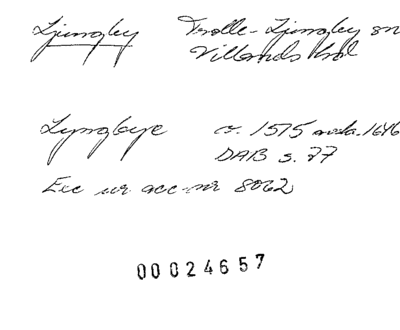 Ljungby Trolle-Ljungby sn
Villands hd
Lyngbye c. 1575 avsk. 1646
DAB s. 77
Exc ur acc-nr 8062
00024657